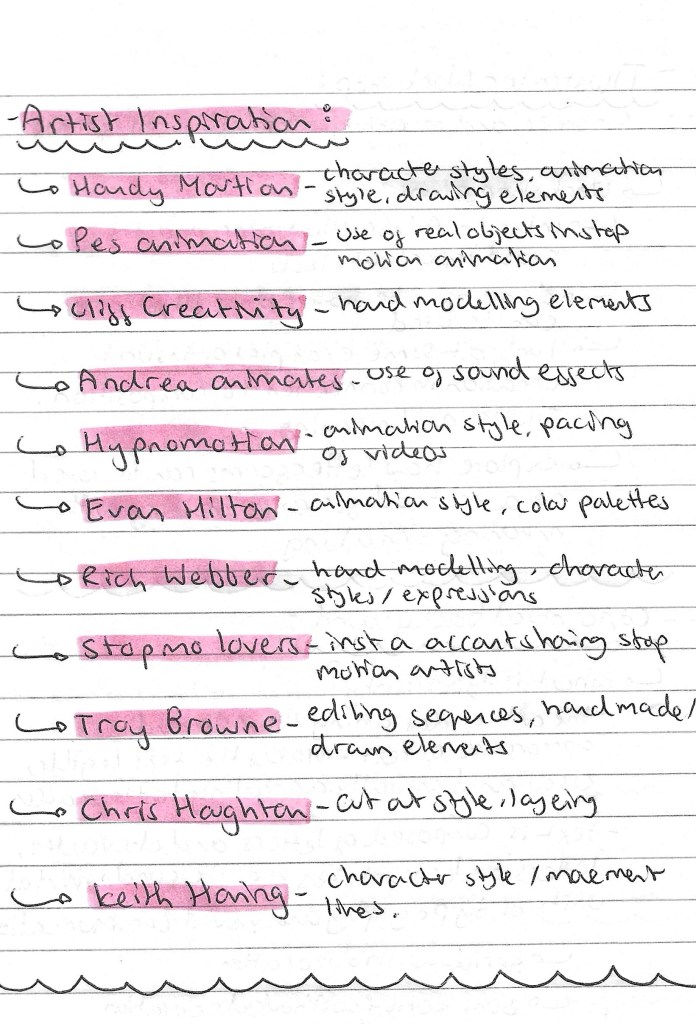 - Artist Inspiration:
Handy Martian - character styles, animation
style, drawing elements
Pes animation - use of real objects in stop
motion animation
Cliff Creativity - hand modelling elements
Andrea animates - use of sound effects
Hypnomotion - animation style, pacing
of videos
Evan Hilton - animation style, color palettes
Rich Webber - hand modelling, character
styles / expressions
Stopmo lovers - insta accant sharing stop
motion artists
Troy Browne - editing sequences, handmade/
drawn elements
Chris Haughton - cut out style, layering
Keith Haring - character style / movement
lines.